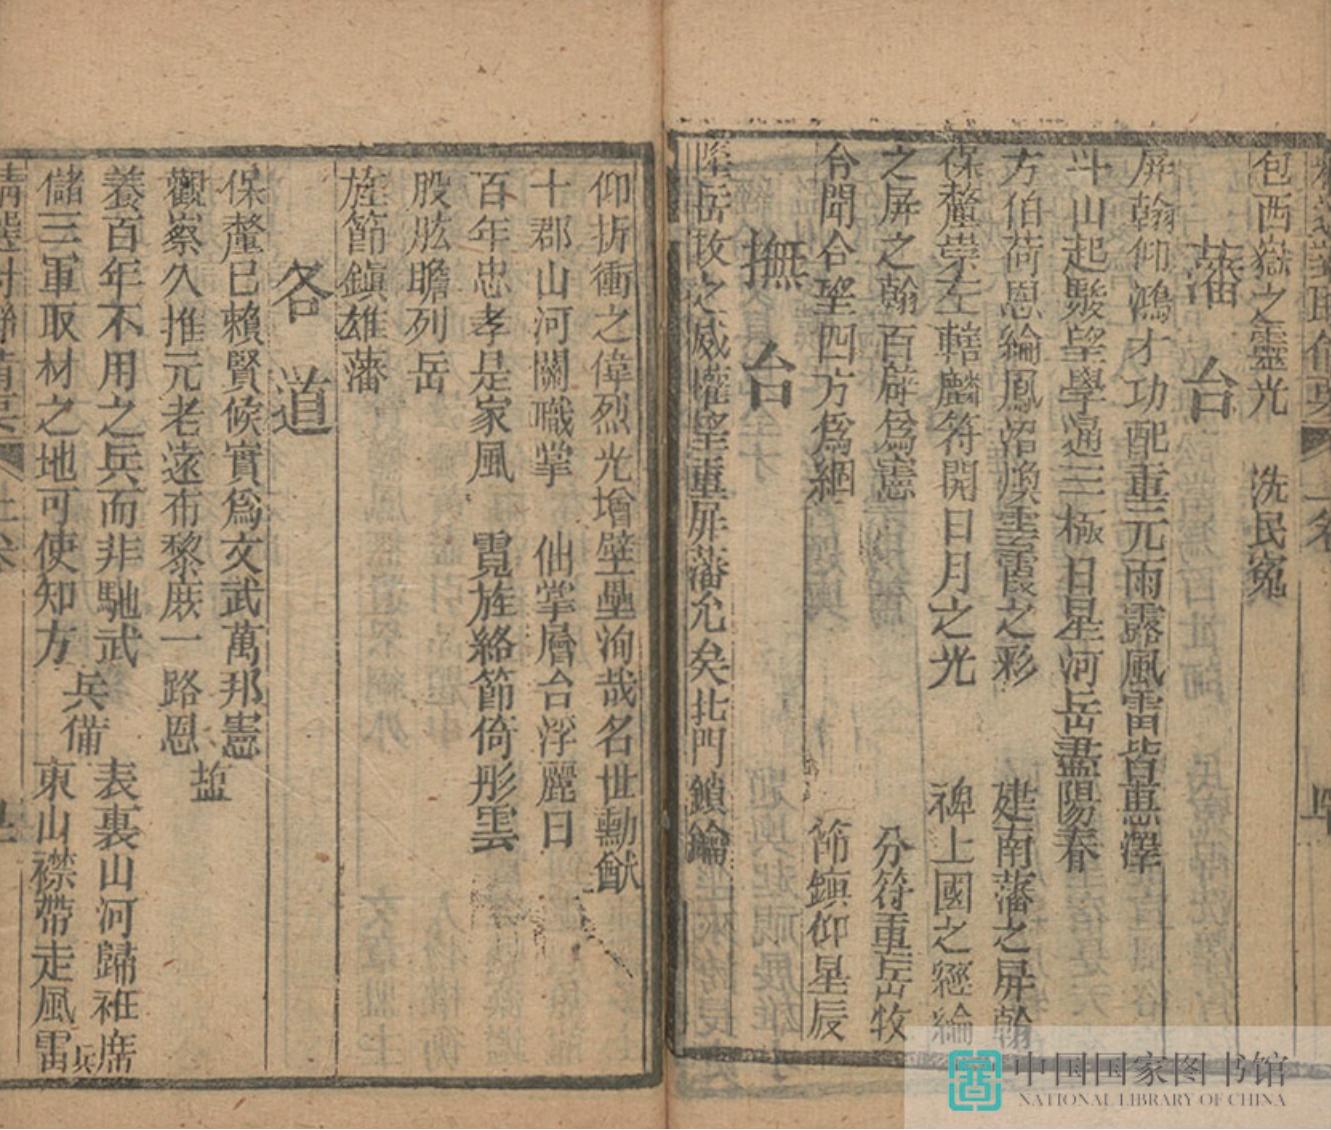 包西嶽之靈光　洗民寃
藩台
屏翰仰鴻才功配重元雨露風雷皆蕙澤
斗山起駿望學通三極日星河岳盡陽春
方伯荷恩綸鳳沼煥雲霞之彩　建南藩之屏翰
保釐崇左轄麟符開日月之光　裨上國之經綸
之屏之翰百辟爲憲　分符重岳牧
令聞令望四方爲綱　節鎮仰星辰
撫台
隆岳牧之威權望重屏藩允矣北門鎖鑰
仰折衝之偉烈光增壁壘洵哉名世勳猷
十郡山河關職掌　仙掌層台浮麗日
百年忠孝是家風　霓旌絡節倚彤雲
股肱膽列岳
旌節鎮雄藩
各道
保釐已賴賢候實爲文武萬邦憲
觀察久推元老遠布黎庶一路恩　盐
養百年不用之兵而非馳武　表裏山河歸袵席
儲三軍取材之地可使知方　兵備　東山襟帶走風雷　兵
中国国家图书馆
NATIONAL LIBRARY OF CHINA